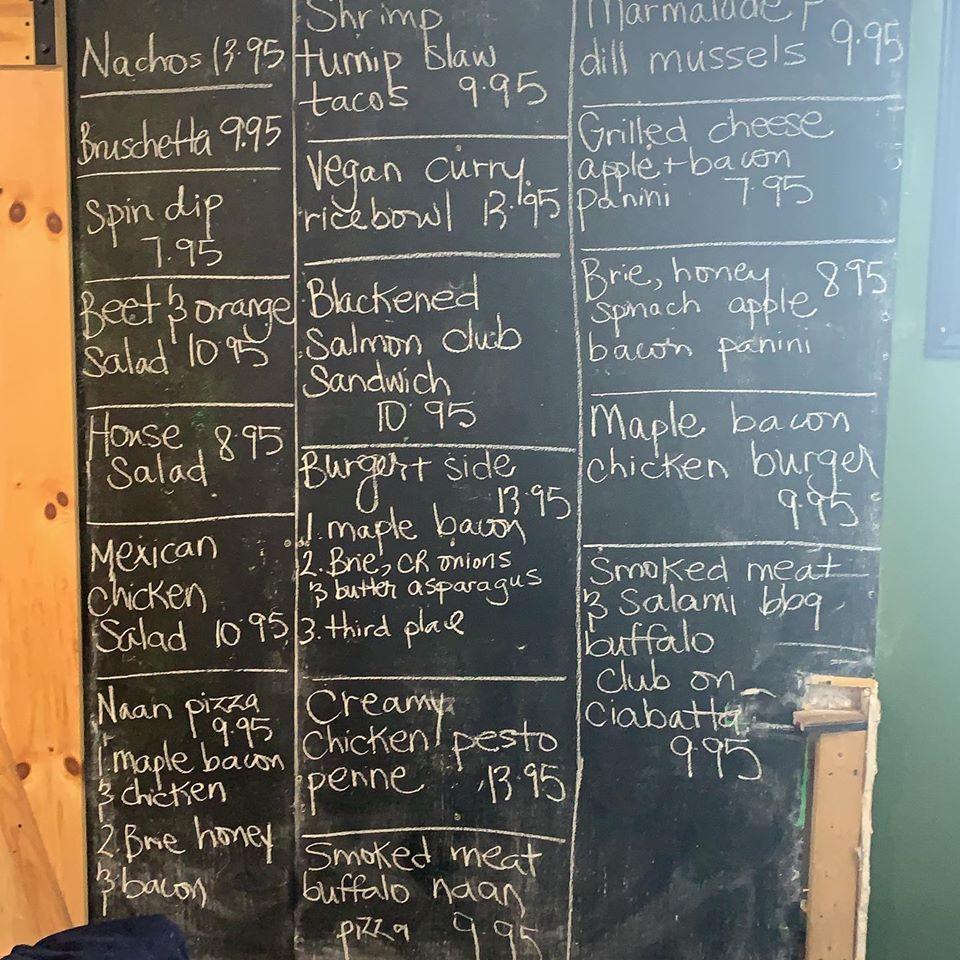 Nachos 13.95
Bruschetta 9.95
Spin dip
7.95
Beet & orange
Salad 10 95
House 8 95
Salad
Mexican
chicken
Salad 10 95
Naan pizza
9.95
1. maple bacon
& chicken
2. Brie honey
& bacon
Shrimp
turnip slaw
tacos 9.95
Vegan curry
rice bowl 13.95
Blackened
Salmon club
Sandwich
10 95
Burger + side
13.95
1. maple bacon
2. Brie, CR onions
& butter asparagus
3. third place
Creamy
Chicken pesto
penne 13.95
Smoked meat
buffalo naan
pizza 9.95
Marmalade
dill mussels 9.95
Grilled cheese
apple + bacon
panini 7.95
Brie, honey 8 95
spinach apple
bacon panini
Maple bacon
chicken burger
9.95
Smoked meat
& Salami bbq
buffalo
club on
Ciabatta
9 95